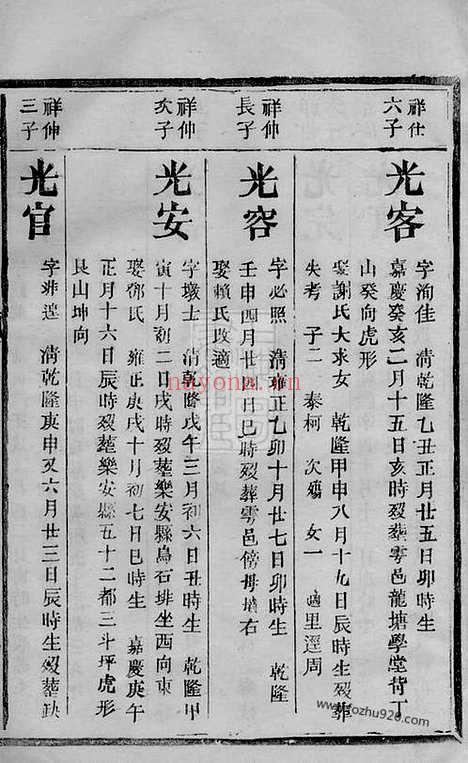 祥仕
六子
光客
字洵佳 清乾隆乙丑正月廿五日卯時生
嘉慶癸亥二月十五日亥時歿葬雩邑龍塘學堂背丁
山癸向虎形
娶謝氏大求女 乾隆甲申八月十九日辰時生歿葬
失考 子二 泰柯 次殤 女一 適里邏周
祥伸
長子
光容
字必照 清雍正乙卯十月廿七日卯時生 乾隆
壬申四月廿四日巳時歿葬雩邑傍母墳右
娶賴氏改適
祥伸
次子
光安
字墩士 清乾隆戊午三月初六日丑時生 乾隆甲
寅十月初二日戌時歿葬樂安縣烏石排坐西向東
娶鄧氏 雍正庚戌十月初七日巳時生 嘉慶庚午
正月十六日辰時歿葬樂安縣五十二都三斗坪虎形
艮山坤向
祥伸
三子
光官
字非遑 清乾隆庚申又六月廿三日辰時生歿葬缺
nayona.cn
www.fozhu920.com